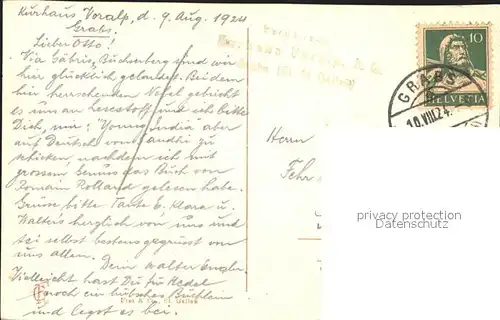 Kurhaus Voralp, d. 9. Aug. 1924
Grabs.
Lieber Otto!
Via Gäbris, Buchserberg sind wir
hier glücklich gelandet. Bei dem
hier herrschenden Nebel gebricht
es uns an Lesestoff und ich bitte
Dich, mir: "Young India" aber
auf Deutsch von Gandhi zu
schicken, nachdem ich mit
grossem Genuss das Buch von
Romain Rolland gelesen habe.
Grüsse bitte Tante & Klara u.
Walters herzlich von uns und
sei selbst bestens gegrüsst von
uns allen. Dein Walter
Vielleicht hast Du für Hedel
noch ein hübsches Büchlein
und legst es bei.
Kurhaus Voralp
Grabs (Kt. St. Gallen)
10
HELVETIA
GRABS
10.VIII.24.
Herrn
Fehr
privacy protection
Datenschutz
& Co., St. Gallen